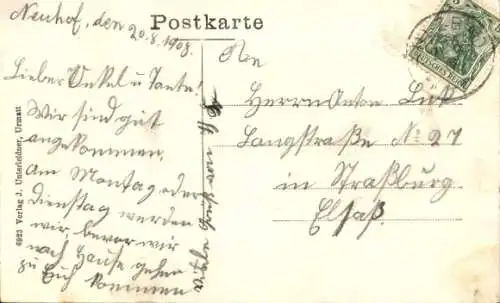 Postkarte
Neuhof, den 20.8.1908.
Lieber Onkel u Tante!
Wir sind gut
angekommen,
am Montag oder
Dienstag werden
wir, bevor wir
nach Hause gehen
zu Euch kommen
viele Grüß von
An
Herrn Anton
Langstraße No 27
in Straßburg
Elsaß.
6923 Verlag J. Unterleidner, Urmatt
DEUTSCHES REICH
5